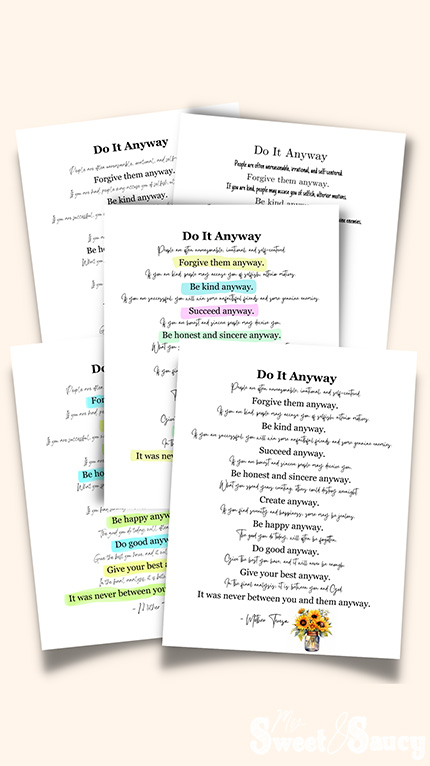 Do It Anyway
People are often unreasonable, irrational, and self-
Forgive them anyway.
If you are kind, people may accuse you of selfish,
Be kind anyway.
If you are successful, you
If you
Be ho
What yo
Do It Anyway
People are often unreasonable, irrational, and self-centered.
Forgive them anyway.
If you are kind, people may accuse you of selfish, ulterior motives.
Be kind anyway.
enemies.
Do It Anyway
People are often unreasonable, irrational, and self-centered.
Forgive them anyway.
If you are kind people may accuse you of selfish, ulterior motives.
Be kind anyway.
If you are successful you will win some unfaithful friends and some genuine enemies.
Succeed anyway.
If you are honest and sincere people may deceive you.
Be honest and sincere anyway.
What you
If you fi
Give
In the
It was never
Do
People are
For
If you are kind, peop
If you are successful, you
If you are
Be ho
What you
If you find
Be happy anyw
The good you do today, will often
Do good anyw
Give the best you have, and it will
Give your best a
In the final analysis, it is betwe
It was never between you
- Mother
Do It Anyway
People are often unreasonable, irrational, and self-centered.
Forgive them anyway.
If you are kind people may accuse you of selfish, ulterior motives.
Be kind anyway.
If you are successful you will win some unfaithful friends and some genuine enemies.
Succeed anyway.
If you are honest and sincere people may deceive you.
Be honest and sincere anyway.
What you spend years creating, others could destroy overnight.
Create anyway.
If you find serenity and happiness, some may be jealous.
Be happy anyway.
The good you do today, will often be forgotten.
Do good anyway.
Give the best you have, and it will never be enough.
Give your best anyway.
In the final analysis, it is between you and God.
It was never between you and them anyway.
- Mother Teresa
Sweet & Saucy